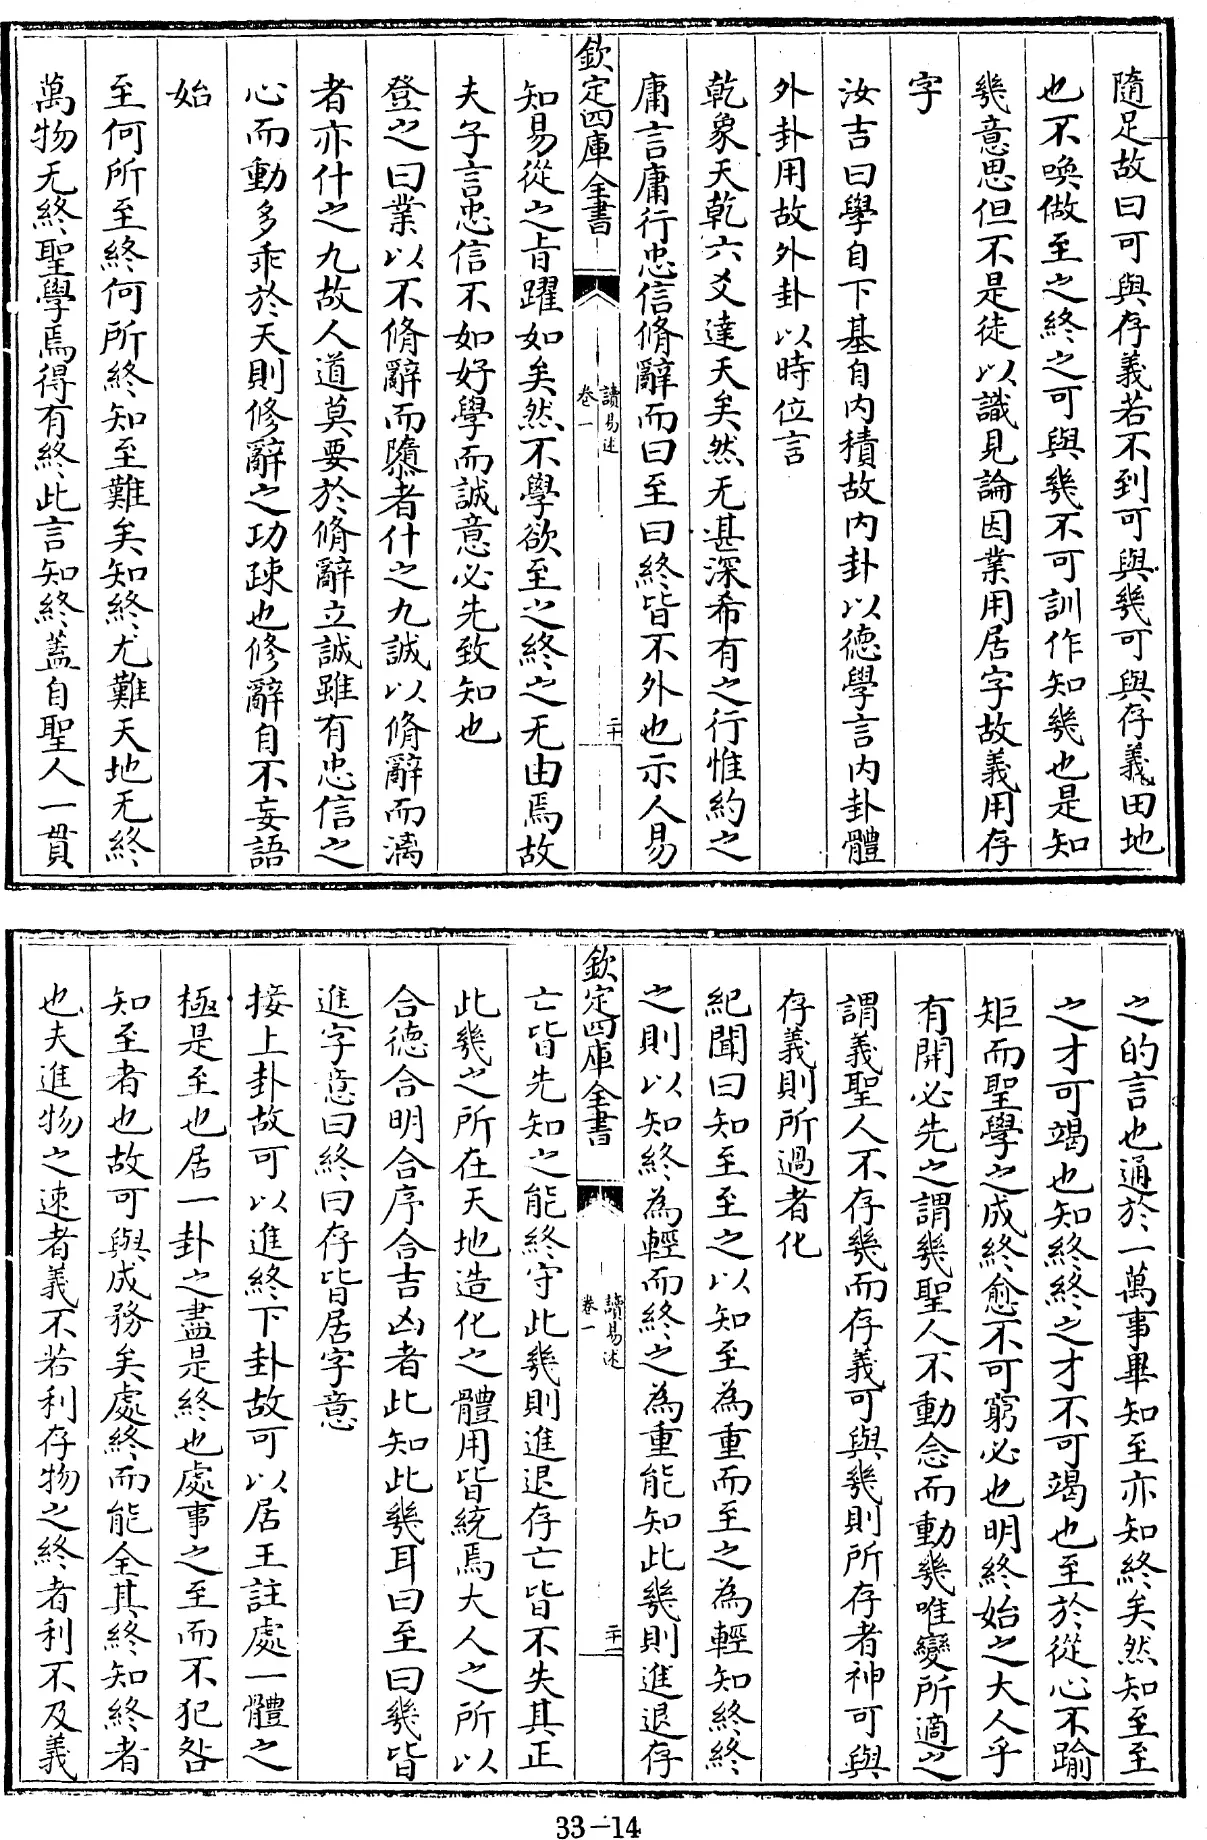 隨足故曰可與存義若不到可與幾可與存義田地
也不喚做至之終之可與幾不可訓作知幾也是知
幾意思但不是徒以識見論因業用居字故義用存
字
汝吉曰學自下基自内積故内卦以德學言内卦體
外卦用故外卦以時位言
乾象天乾六爻達天矣然无甚深希有之行惟約之
庸言庸行忠信脩辭而曰至曰終皆不外也示人易
欽定四庫全書
讀易述
卷一
二十
知易從之旨躍如矣然不學欲至之終之无由焉故
夫子言忠信不如好學而誠意必先致知也
登之曰業以不脩辭而隳者什之九誠以脩辭而漓
者亦什之九故人道莫要於脩辭立誠雖有忠信之
心而動多乖於天則修辭之功疎也修辭自不妄語
始
至何所至終何所終知至難矣知終尤難天地无終
萬物无終聖學焉得有終此言知終蓋自聖人一貫
之的言也通於一萬事畢知至亦知終矣然知至至
之才可竭也知終終之才不可竭也至於從心不踰
矩而聖學之成終愈不可窮必也明終始之大人乎
有開必先之謂幾聖人不動念而動幾唯變所適之
謂義聖人不存幾而存義可與幾則所存者神可與
存義則所過者化
紀聞曰知至至之以知至為重而至之為輕知終終
之則以知終為輕而終之為重能知此幾則進退存
欽定四庫全書
讀易述
卷一
二十一
亡皆先知之能終守此幾則進退存亡皆不失其正
此幾之所在天地造化之體用皆統焉大人之所以
合德合明合序合吉凶者此知此幾耳曰至曰幾皆
進字意曰終曰存皆居字意
接上卦故可以進終下卦故可以居王註處一體之
極是至也居一卦之盡是終也處事之至而不犯咎
知至者也故可與成務矣處終而能全其終知終者
也夫進物之速者義不若利存物之終者利不及義
33-14